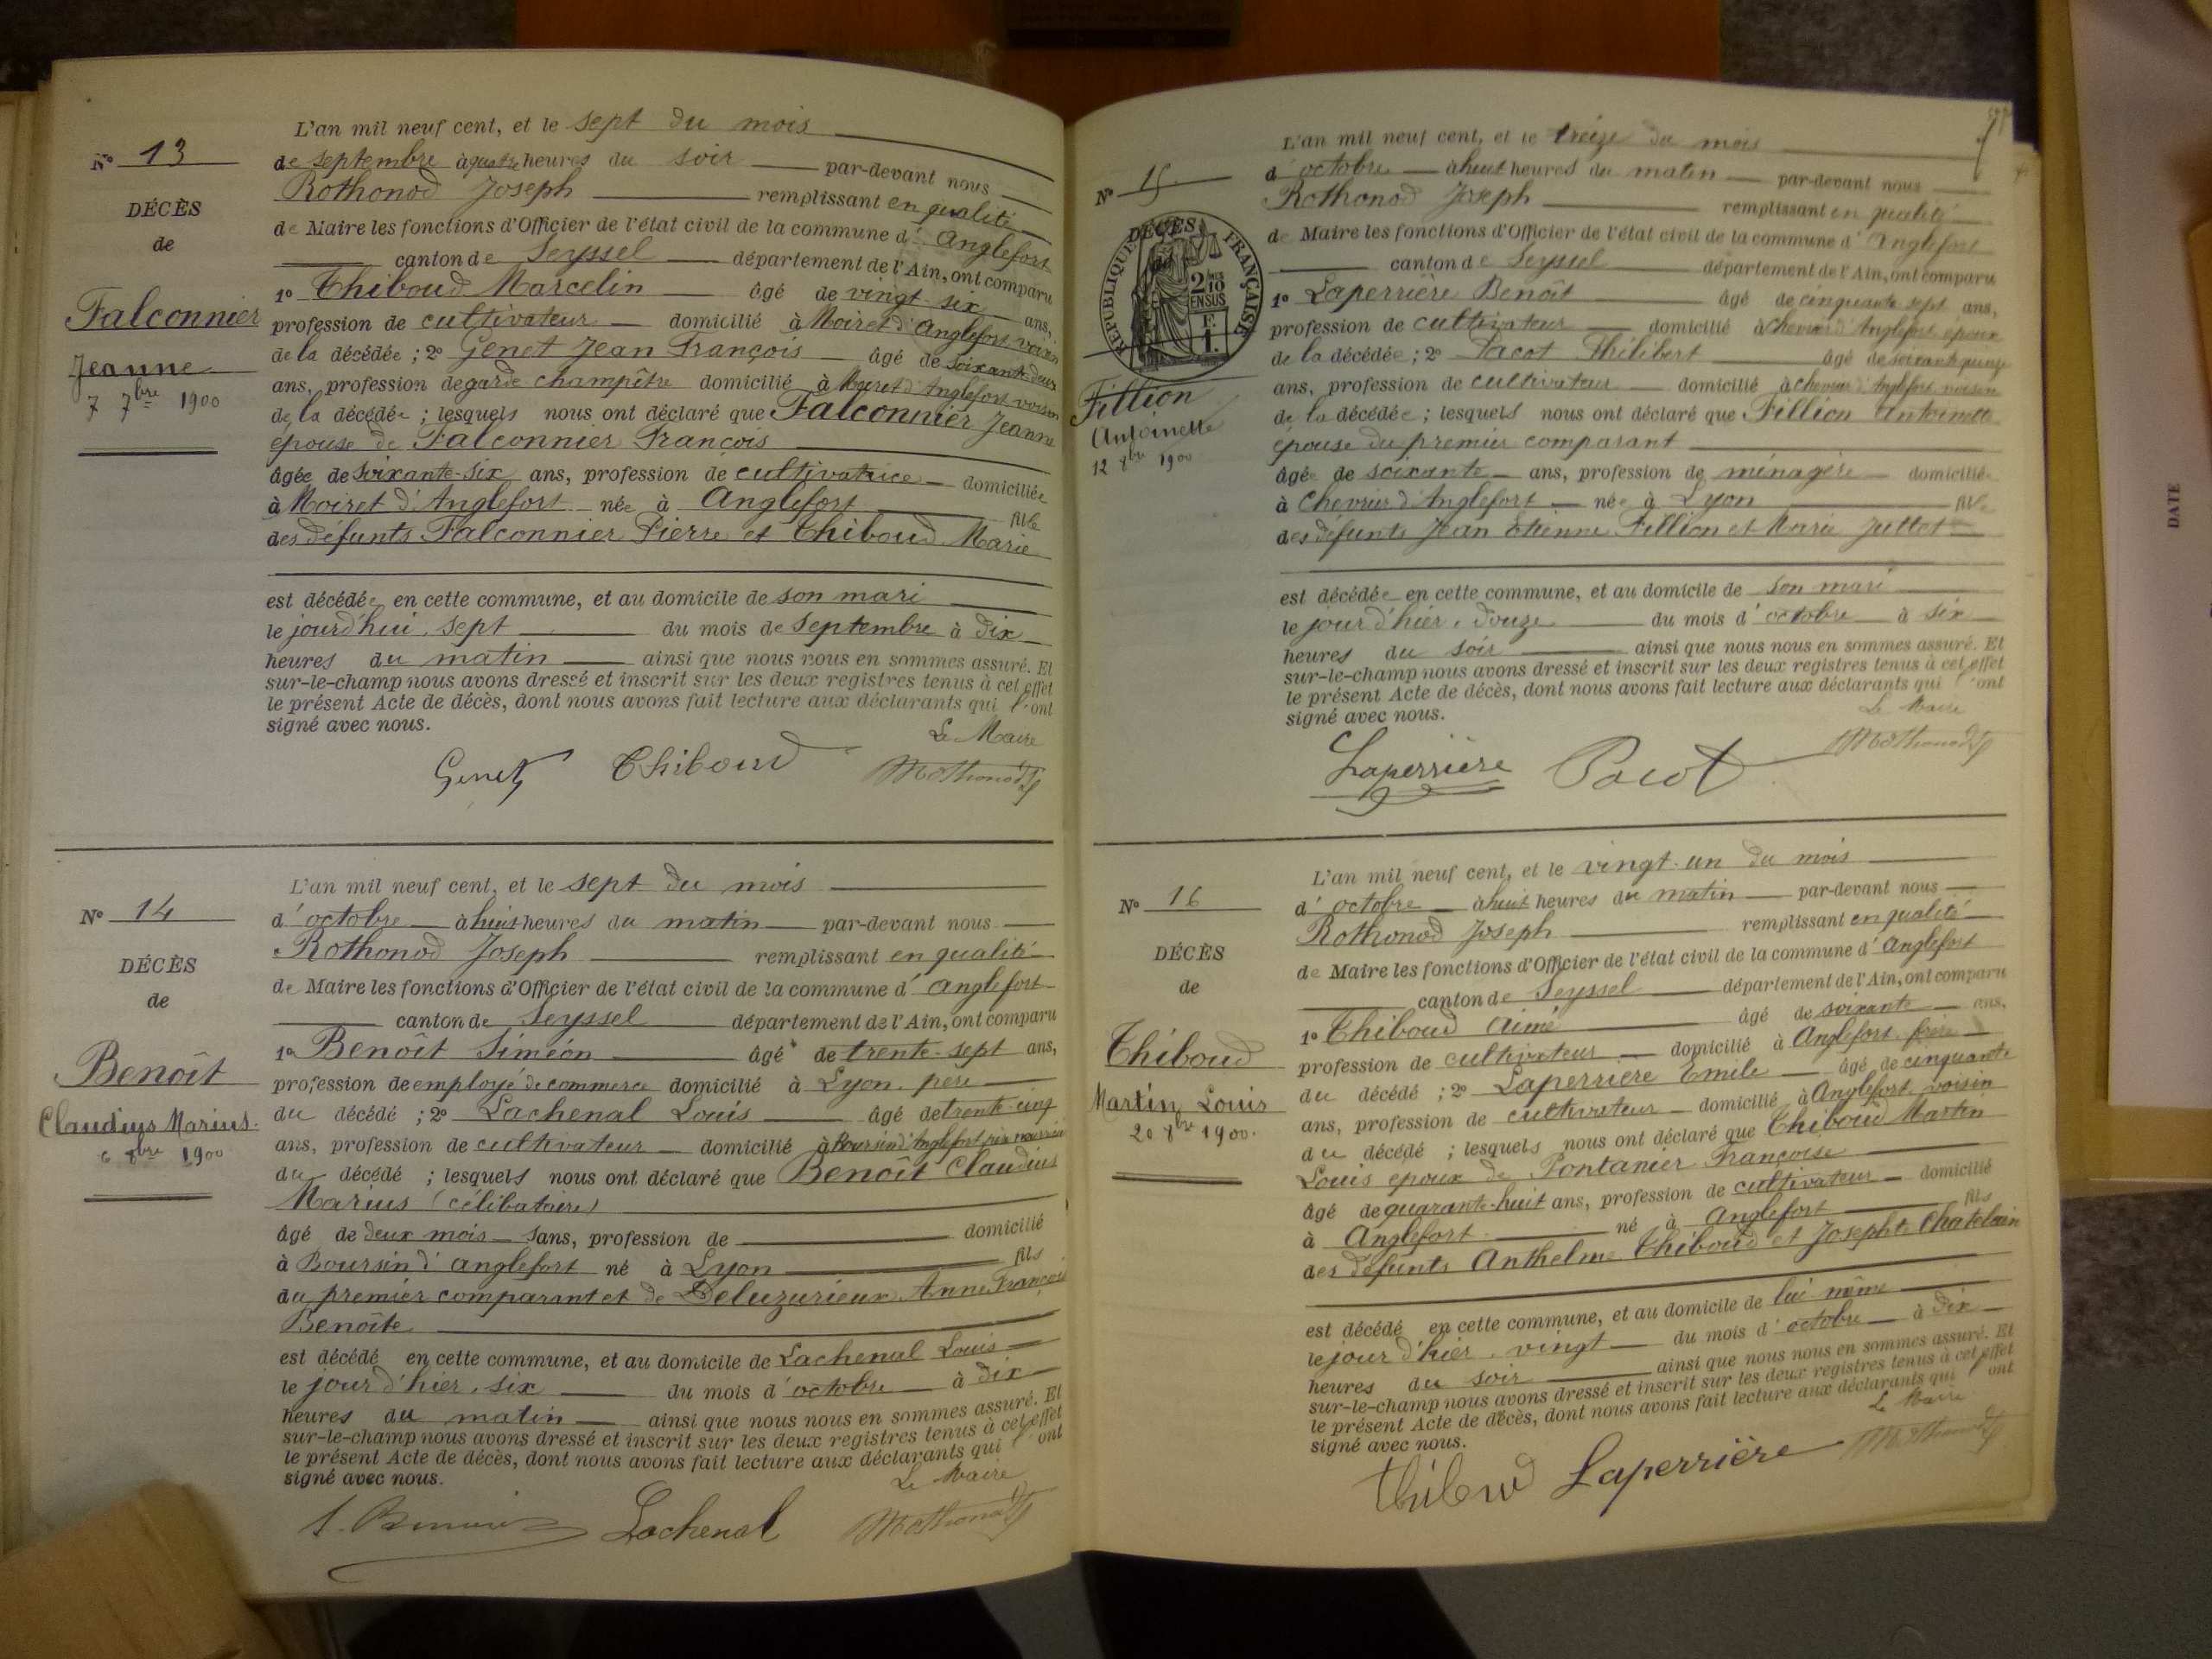 N° 13
DÉCÈS
de
Falconnier
Jeanne
7 7bre 1900
L'an mil neuf cent, et le sept du mois
de septembre à quatre heures du soir par-devant nous
Rothonod Joseph remplissant en qualité
de Maire les fonctions d'Officier de l'état civil de la commune d' Anglefort
canton de Seyssel département de l'Ain, ont comparu
1° Thiboud Marcelin âgé de vingt-six ans,
profession de cultivateur domicilié à Moiret d'Anglefort voisin
de la décédée ; 2° Genet Jean François âgé de soixante-deux
ans, profession de garde champêtre domicilié à Moiret d'Anglefort voisin
de la décédée ; lesquels nous ont déclaré que Falconnier Jeanne
épouse de Falconnier François
âgée de soixante-six ans, profession de cultivatrice domiciliée
à Moiret d'Anglefort née à Anglefort fille
des défunts Falconnier Pierre et Thiboud Marie
est décédée en cette commune, et au domicile de son mari
le jourd'hui, sept du mois de septembre à dix
heures du matin ainsi que nous nous en sommes assuré. Et
sur-le-champ nous avons dressé et inscrit sur les deux registres tenus à cet effet
le présent Acte de décès, dont nous avons fait lecture aux déclarants qui l'ont
signé avec nous.
Le Maire
Genet Thiboud Rothonod
N° 14
DÉCÈS
de
Benoît
Claudius Marius.
6 8bre 1900
L'an mil neuf cent, et le sept du mois
d'octobre à huit heures du matin par-devant nous
Rothonod Joseph remplissant en qualité
de Maire les fonctions d'Officier de l'état civil de la commune d' Anglefort
canton de Seyssel département de l'Ain, ont comparu
1° Benoît Siméon âgé de trente-sept ans,
profession de employé de commerce domicilié à Lyon père
du décédé ; 2° Lachenal Louis âgé de trente-cinq
ans, profession de cultivateur domicilié à Boursin d'Anglefort père nourricier
du décédé ; lesquels nous ont déclaré que Benoît Claudius
Marius (célibataire)
âgé de deux mois sans, profession de domicilié
à Boursin d'anglefort né à Lyon fils
du premier comparant et de Deluzurieux Anne Françoise
Benoîte
est décédé en cette commune, et au domicile de Lachenal Louis
le jour d'hier, six du mois d'octobre à dix
heures du matin ainsi que nous nous en sommes assuré. Et
sur-le-champ nous avons dressé et inscrit sur les deux registres tenus à cet effet
le présent Acte de décès, dont nous avons fait lecture aux déclarants qui l'ont
signé avec nous.
Le Maire
S. Benoit Lachenal Rothonod
N° 15
DÉCÈS
RÉPUBLIQUE FRANÇAISE
2/10 EN SUS
Fillion
Antoinette
12 8bre 1900
L'an mil neuf cent, et le treize du mois
d'octobre à huit heures du matin par-devant nous
Rothonod Joseph remplissant en qualité
de Maire les fonctions d'Officier de l'état civil de la commune d' Anglefort
canton de Seyssel département de l'Ain, ont comparu
1° Laperrière Benoît âgé de cinquante sept ans,
profession de cultivateur domicilié à Chevrier d'Anglefort époux
de la décédée ; 2° Pacot Philibert âgé de soixante quinze
ans, profession de cultivateur domicilié à Chevrier d'Anglefort voisin
de la décédée ; lesquels nous ont déclaré que Fillion Antoinette
épouse du premier comparant
âgée de soixante ans, profession de ménagère domiciliée
à Chevrier d'Anglefort née à Lyon fille
des défunts Jean Etienne Fillion et Marie Juttet
est décédée en cette commune, et au domicile de son mari
le jour d'hier, douze du mois d'octobre à six
heures du soir ainsi que nous nous en sommes assuré. Et
sur-le-champ nous avons dressé et inscrit sur les deux registres tenus à cet effet
le présent Acte de décès, dont nous avons fait lecture aux déclarants qui l'ont
signé avec nous.
Le Maire
Laperrière Pacot Rothonod
N° 16
DÉCÈS
de
Thiboud
Martin Louis
20 8bre 1900.
L'an mil neuf cent, et le vingt-un du mois
d'octobre à huit heures du matin par-devant nous
Rothonod Joseph remplissant en qualité
de Maire les fonctions d'Officier de l'état civil de la commune d' Anglefort
canton de Seyssel département de l'Ain, ont comparu
1° Thiboud Aimé âgé de soixante ans,
profession de cultivateur domicilié à Anglefort frère
du décédé ; 2° Laperrière Emile âgé de cinquante
ans, profession de cultivateur domicilié à Anglefort voisin
du décédé ; lesquels nous ont déclaré que Thiboud Martin
Louis époux de Pontanier Françoise
âgé de quarante-huit ans, profession de cultivateur domicilié
à Anglefort né à Anglefort fils
des défunts Anthelme Thiboud et Josephte Chatelain
est décédé en cette commune, et au domicile de lui même
le jour d'hier, vingt du mois d'octobre à dix
heures du soir ainsi que nous nous en sommes assuré. Et
sur-le-champ nous avons dressé et inscrit sur les deux registres tenus à cet effet
le présent Acte de décès, dont nous avons fait lecture aux déclarants qui l'ont
signé avec nous.
Le Maire
Thiboud Laperrière Rothonod
DATE